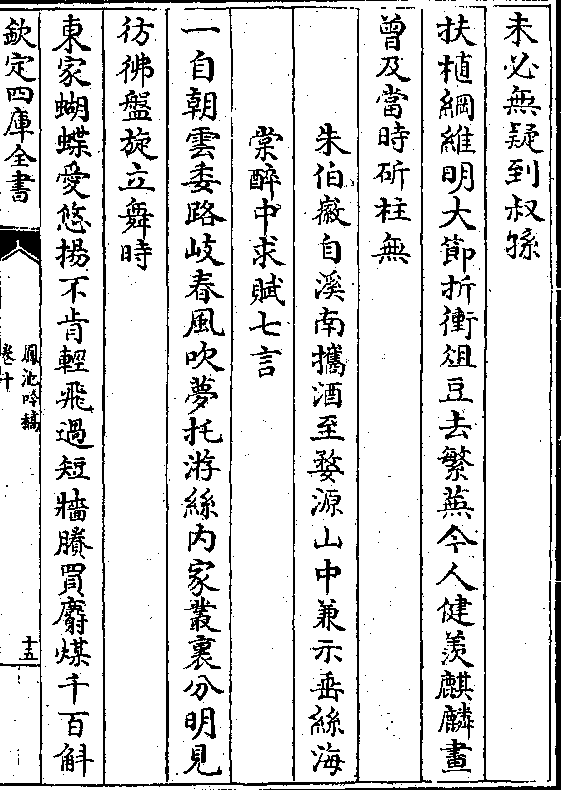 未必無疑到叔孫
扶植綱維明大節折衝俎豆去繁蕪今人健羨麒麟畫
曾及當時斫柱無
朱伯徽自溪南攜酒至婺源山中兼示垂絲海
棠醉中求賦七言
一自朝雲委路岐春風吹夢托游絲内家叢裏分明見
彷彿盤旋立舞時
東家蝴蝶愛悠揚不肯輕飛過短牆賸買麝煤千百斛
欽定四庫全書
鳳池吟稿
卷十
十五